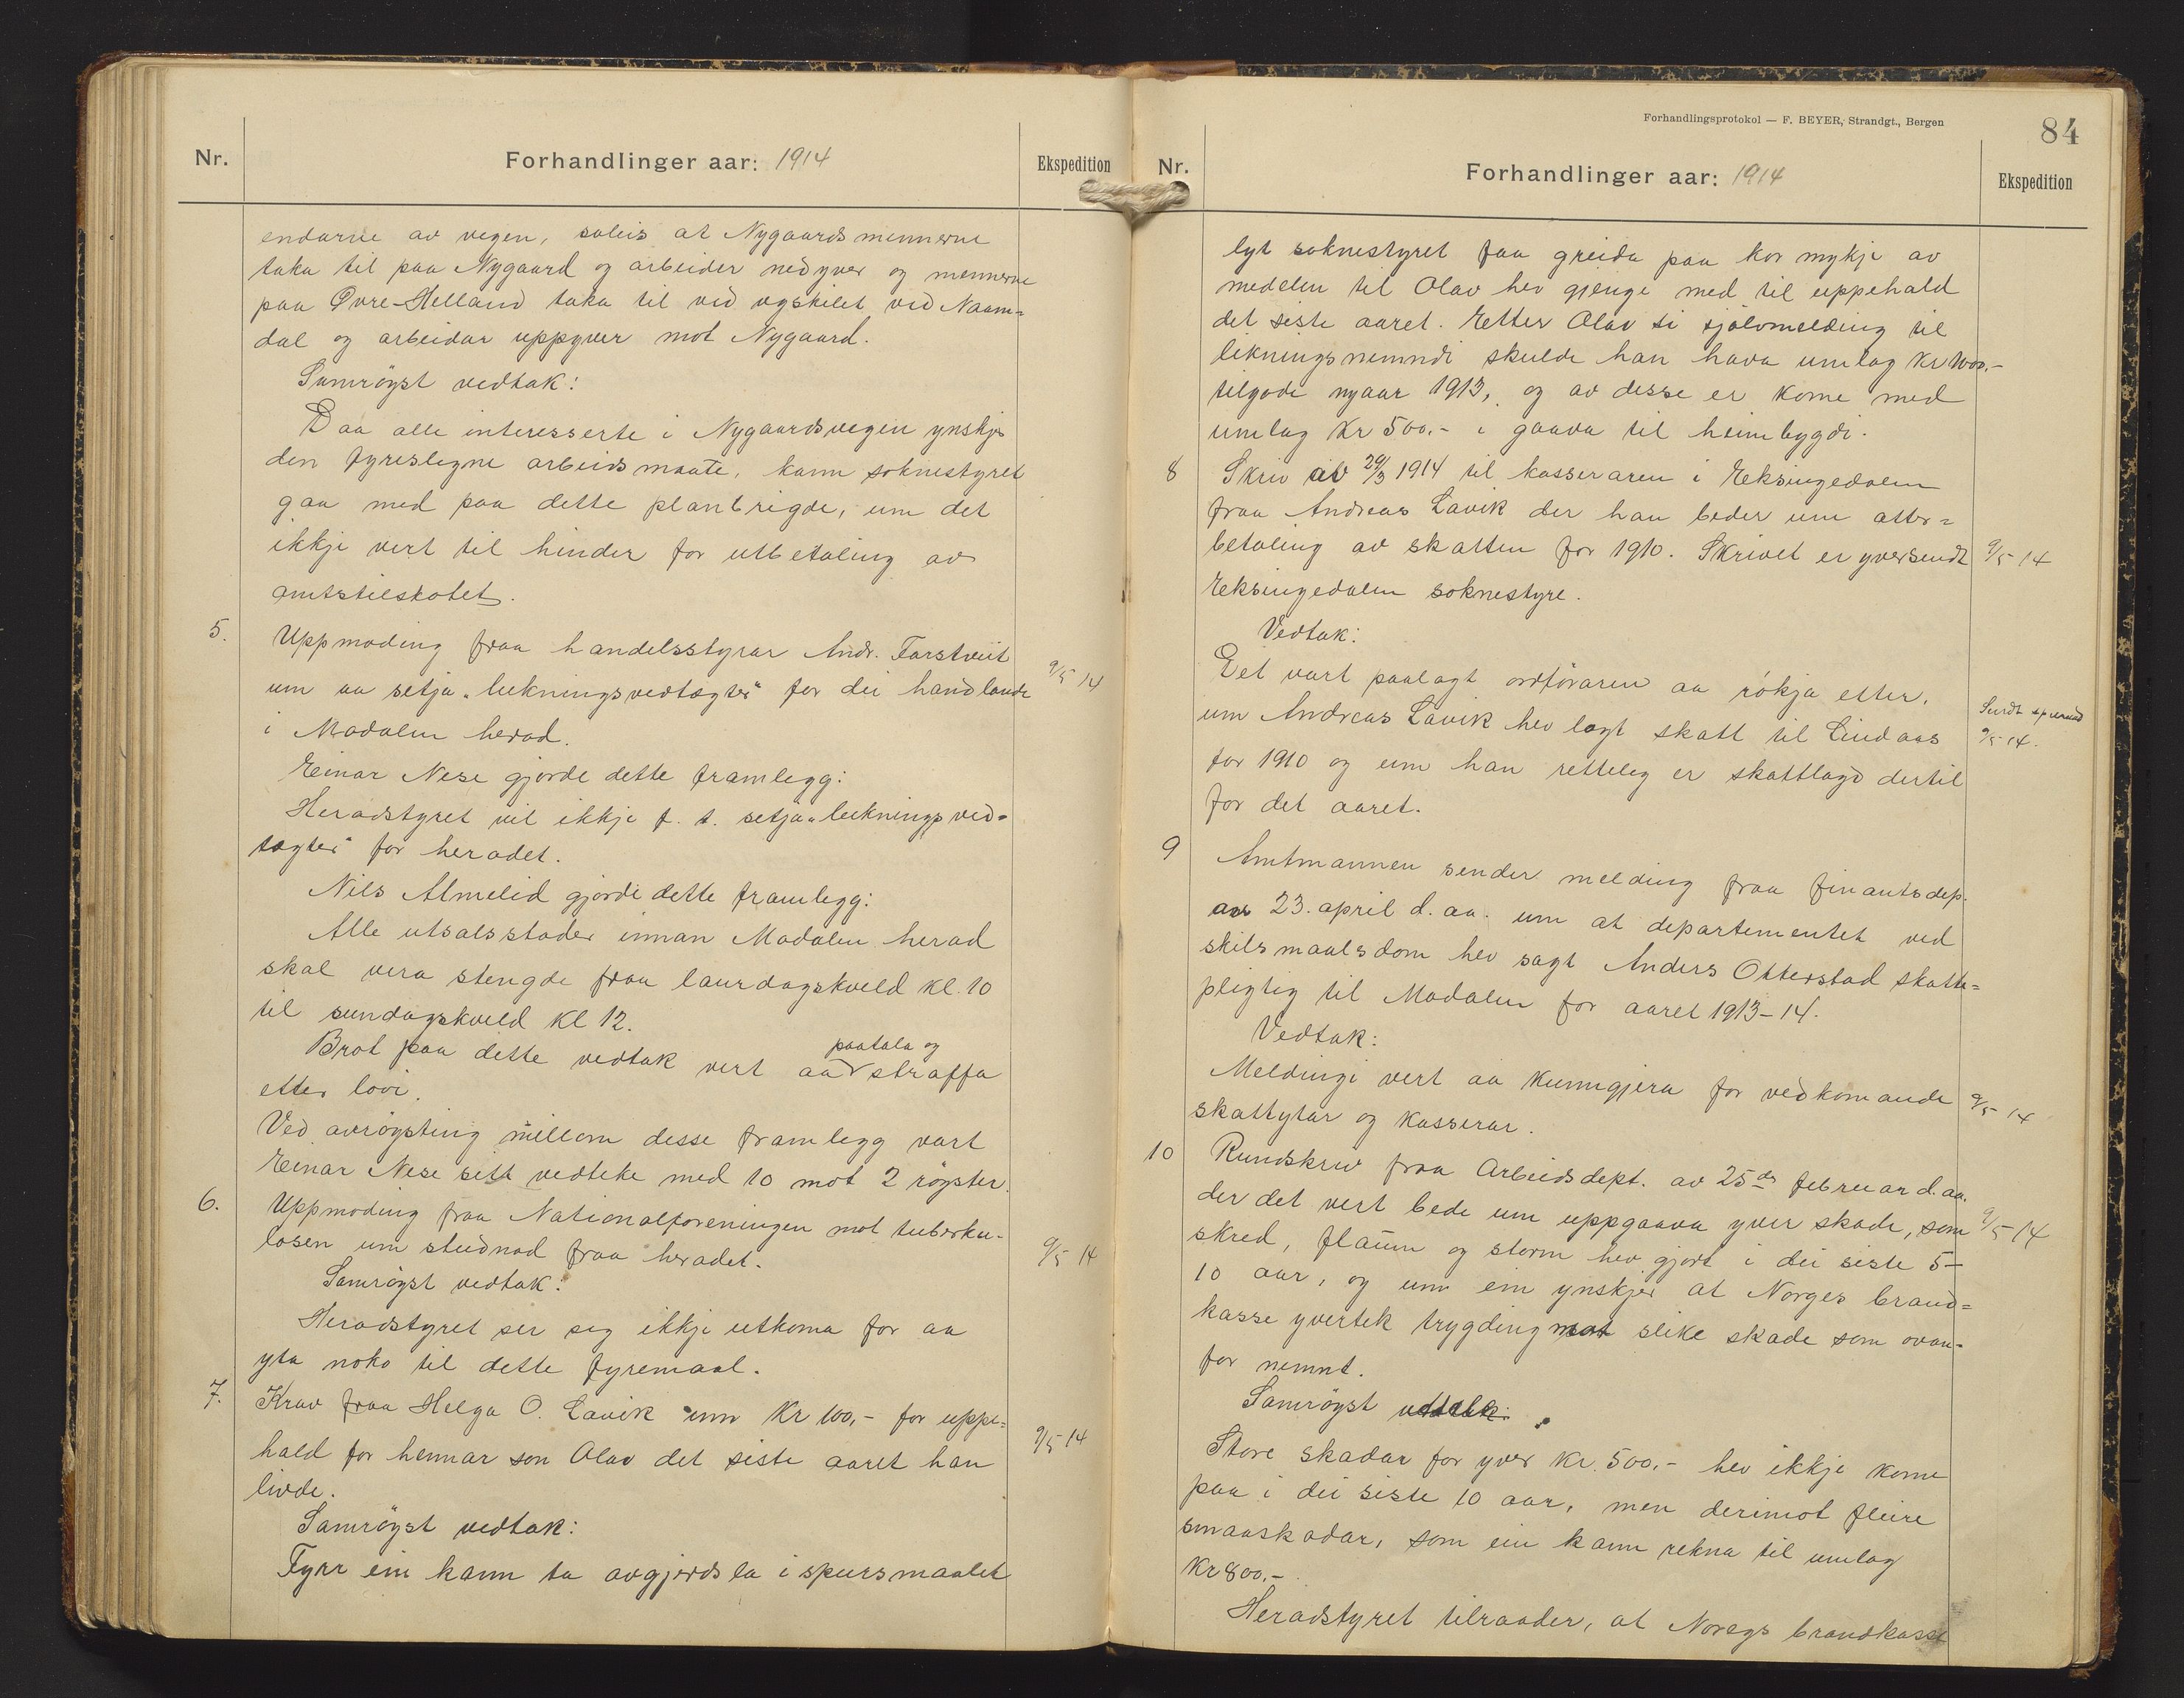 Nr.
Forhandlinger aar: 1914
Ekspedition
endarne av vegen, soleis at Nygaardsmennerne
taka til paa Nygaard og arbeider nedyver og mennerne
paa Øvre-Helland taka til ved vgskilet ved Naam=
dal og arbeidar uppyver mot Nygaard.
Samrøyst vedtak:
Daa alle interesserte i Nygaardsvegen ynskjer
den fyreslegne arbeidsmaate, kann soknestyret
gaa med paa dette planbrigde, um det
ikkji vert til hinder for utbetaling av
amtstilskotet.
5.
Uppmoding fraa handelsstyrar Andr. Farstveit
9/5 14
um aa setja "lukningsvedtægter" for dei handlande
i Modalen herad.
Einar Nese gjorde dette framlegg:
Heradstyret vil ikkje f. t. setja "lukningsved=
tægter" for heradet.
Nils Almelid gjorde dette framlegg:
Alle utsalsstader innan Modalen herad
skal vera stengde fraa laurdagskveld kl. 10
til sundagskveld kl 12.
Brot paa dette vedtak vert aa paatala og straffa
etter lovi.
Ved avrøysting millom desse framlegg vart
Einar Nese sitt vedteke med 10 mot 2 røyster.
6.
Uppmoding fraa Nationalforeningen mot tuberku-
losen um studnad fraa heradet.
9/5 14
Samrøyst vedtak:
Heradstyret ser seg ikkje utkoma for aa
yta noko til dette fyremaal.
7.
Krav fraa Helga O. Lavik um Kr 100,- for uppe=
hald for hennar son Olav det siste aaret han
9/5 14
livde.
Samrøyst vedtak:
Fyrr ein kann ta avgjerdsla i spursmaalet
Forhandlingsprotokol — F. BEYER, Strandgt., Bergen
84
Nr.
Forhandlinger aar: 1914
Ekspedition
lyt soknestyret faa greida paa kor mykje av
medelen til Olav hev gjenge med til uppehald
det siste aaret. Etter Olav si sjølvmelding til
likningsnemndi skulde han hava umlag kr 1000,-
tilgode nyaar 1913, og av desse er kome med
umlag Kr 500.- i gaava til heimbygdi.
8
Skriv av 29/3 1914 til kasseraren i Eksingedalen
fraa Andreas Lavik der han beder um atter=
betaling av skatten for 1910. Skrivet er yversendt
9/5 14
Eksingedalen soknestyre.
Vedtak:
Det vart paalagt ordføraren aa røkja etter,
um Andreas Lavik hev lagt skatt til Lindaas
9/5 14.
for 1910 og um han retteleg er skattlagd dertil
for det aaret.
9
Amtmannen sender melding fraa finantsdep.
av 23. april d. aa. um at departementet ved
skilsmaalsdom hev sagt Anders Otterstad skatte=
pligtig til Modalen for aaret 1913-14.
Vedtak:
Meldingi vert aa kunngjera for vedkomande
9/5 14
skattytar og kasserar.
10
Rundskriv fraa Arbeidsdept. av 25de februar d. aa.
der det vert bede um uppgaava yver skade, som
9/5 14
skred, flaum og storm hev gjort i dei siste 5-
10 aar, og um ein ynskjer at Norges brand=
kasse yvertek trygding mot slike skade som ovan-
for nemnt.
Samrøyst vedtak:
Store skadar for yver Kr. 500,- hev ikkje kome
paa i dei siste 10 aar, men derimot fleire
smaaskadar, som ein kann rekna til umlag
Kr 800,-
Heradstyret tilraader, at Noregs brandkasse